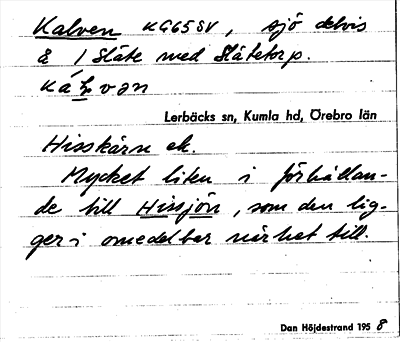 Kalven KG65SV, sjö delvis
å 1 Slåte med Slåtetorp.
Lerbäcks sn, Kumla hd, Örebro län
Hisskärn ek.
Mycket liten i förhållan-
de till Hissjön, som den lig-
ger i omedelbar närhet till.
Dan Höjdestrand 1958